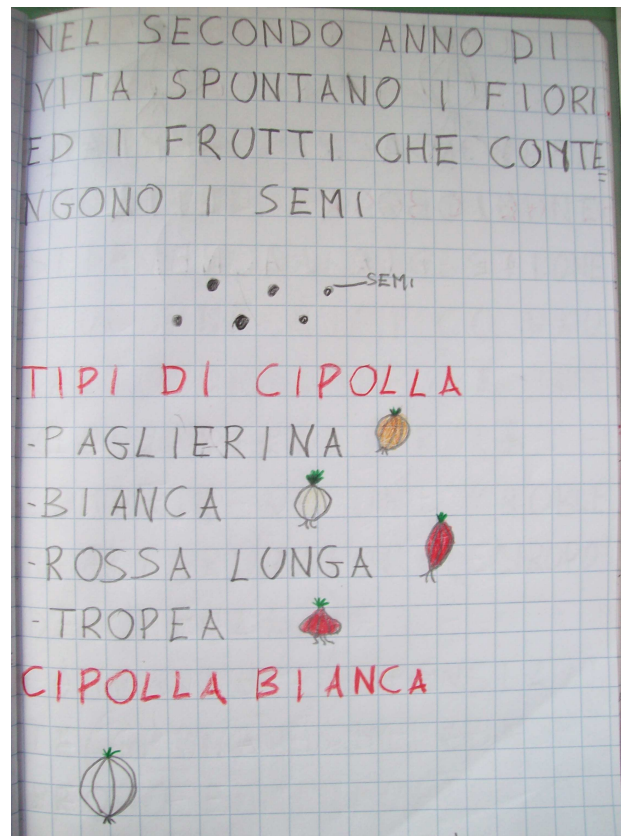 NEL SECONDO ANNO DI
VITA SPUNTANO I FIORI
ED I FRUTTI CHE CONTE
NGONO I SEMI
SEMI
TIPI DI CIPOLLA
-PAGLIERINA
-BIANCA
-ROSSA LUNGA
-TROPEA
CIPOLLA BIANCA